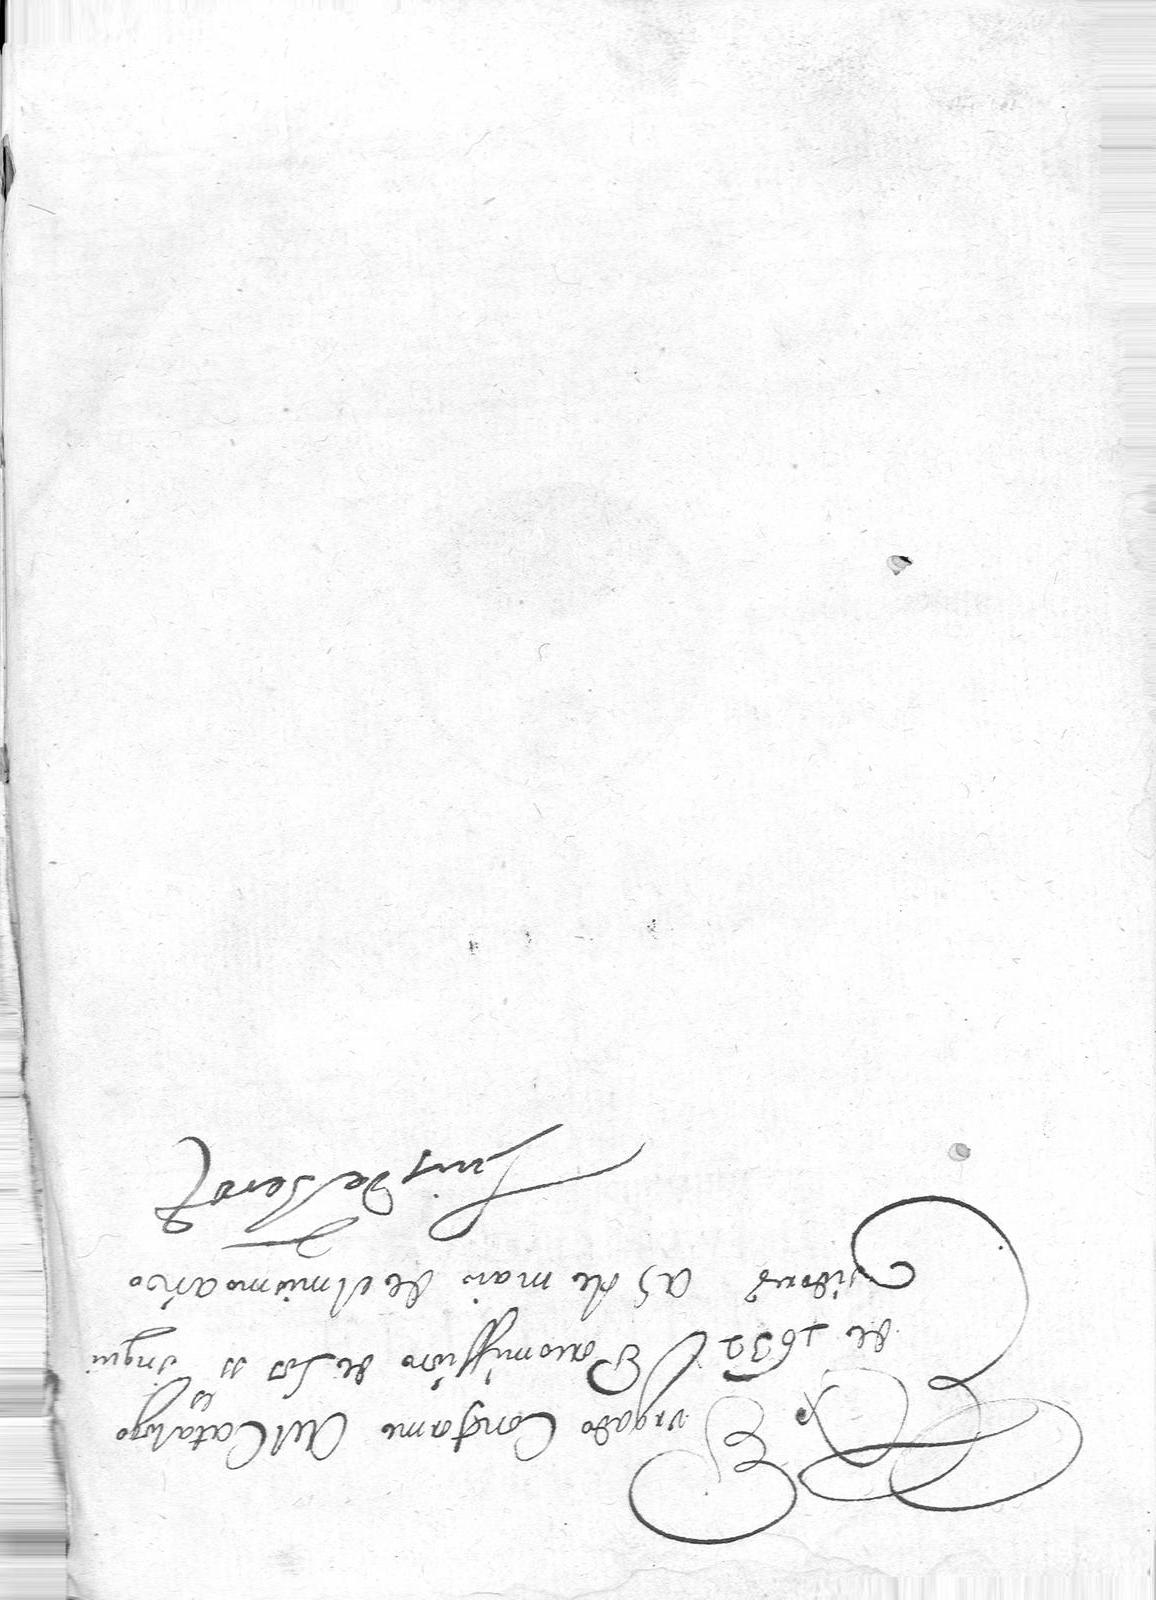 Expurgado Conforme Al Catalogo
de 1632 Por comission de los ss inqui
sidores a 5 de maio de el mismo año
Luis de